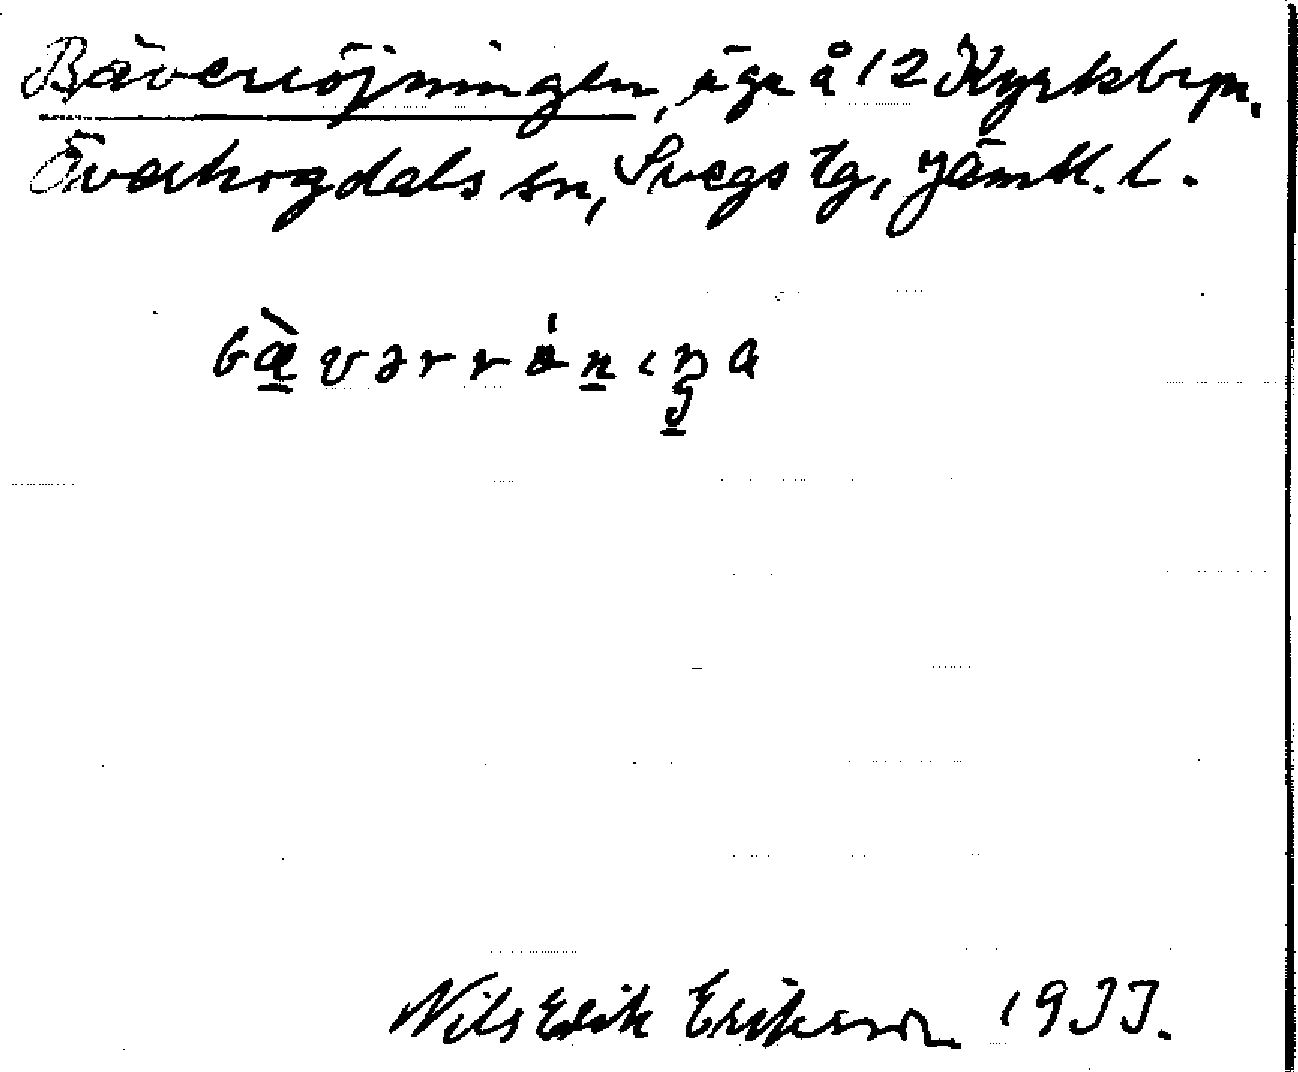 Bäverröjningen, äga å 12 Kyrkbyn.
Överhogdals sn, Svegs tg, Jämtl. l.
bävərrönıŋa
Nils Erik Eriksson 1933.